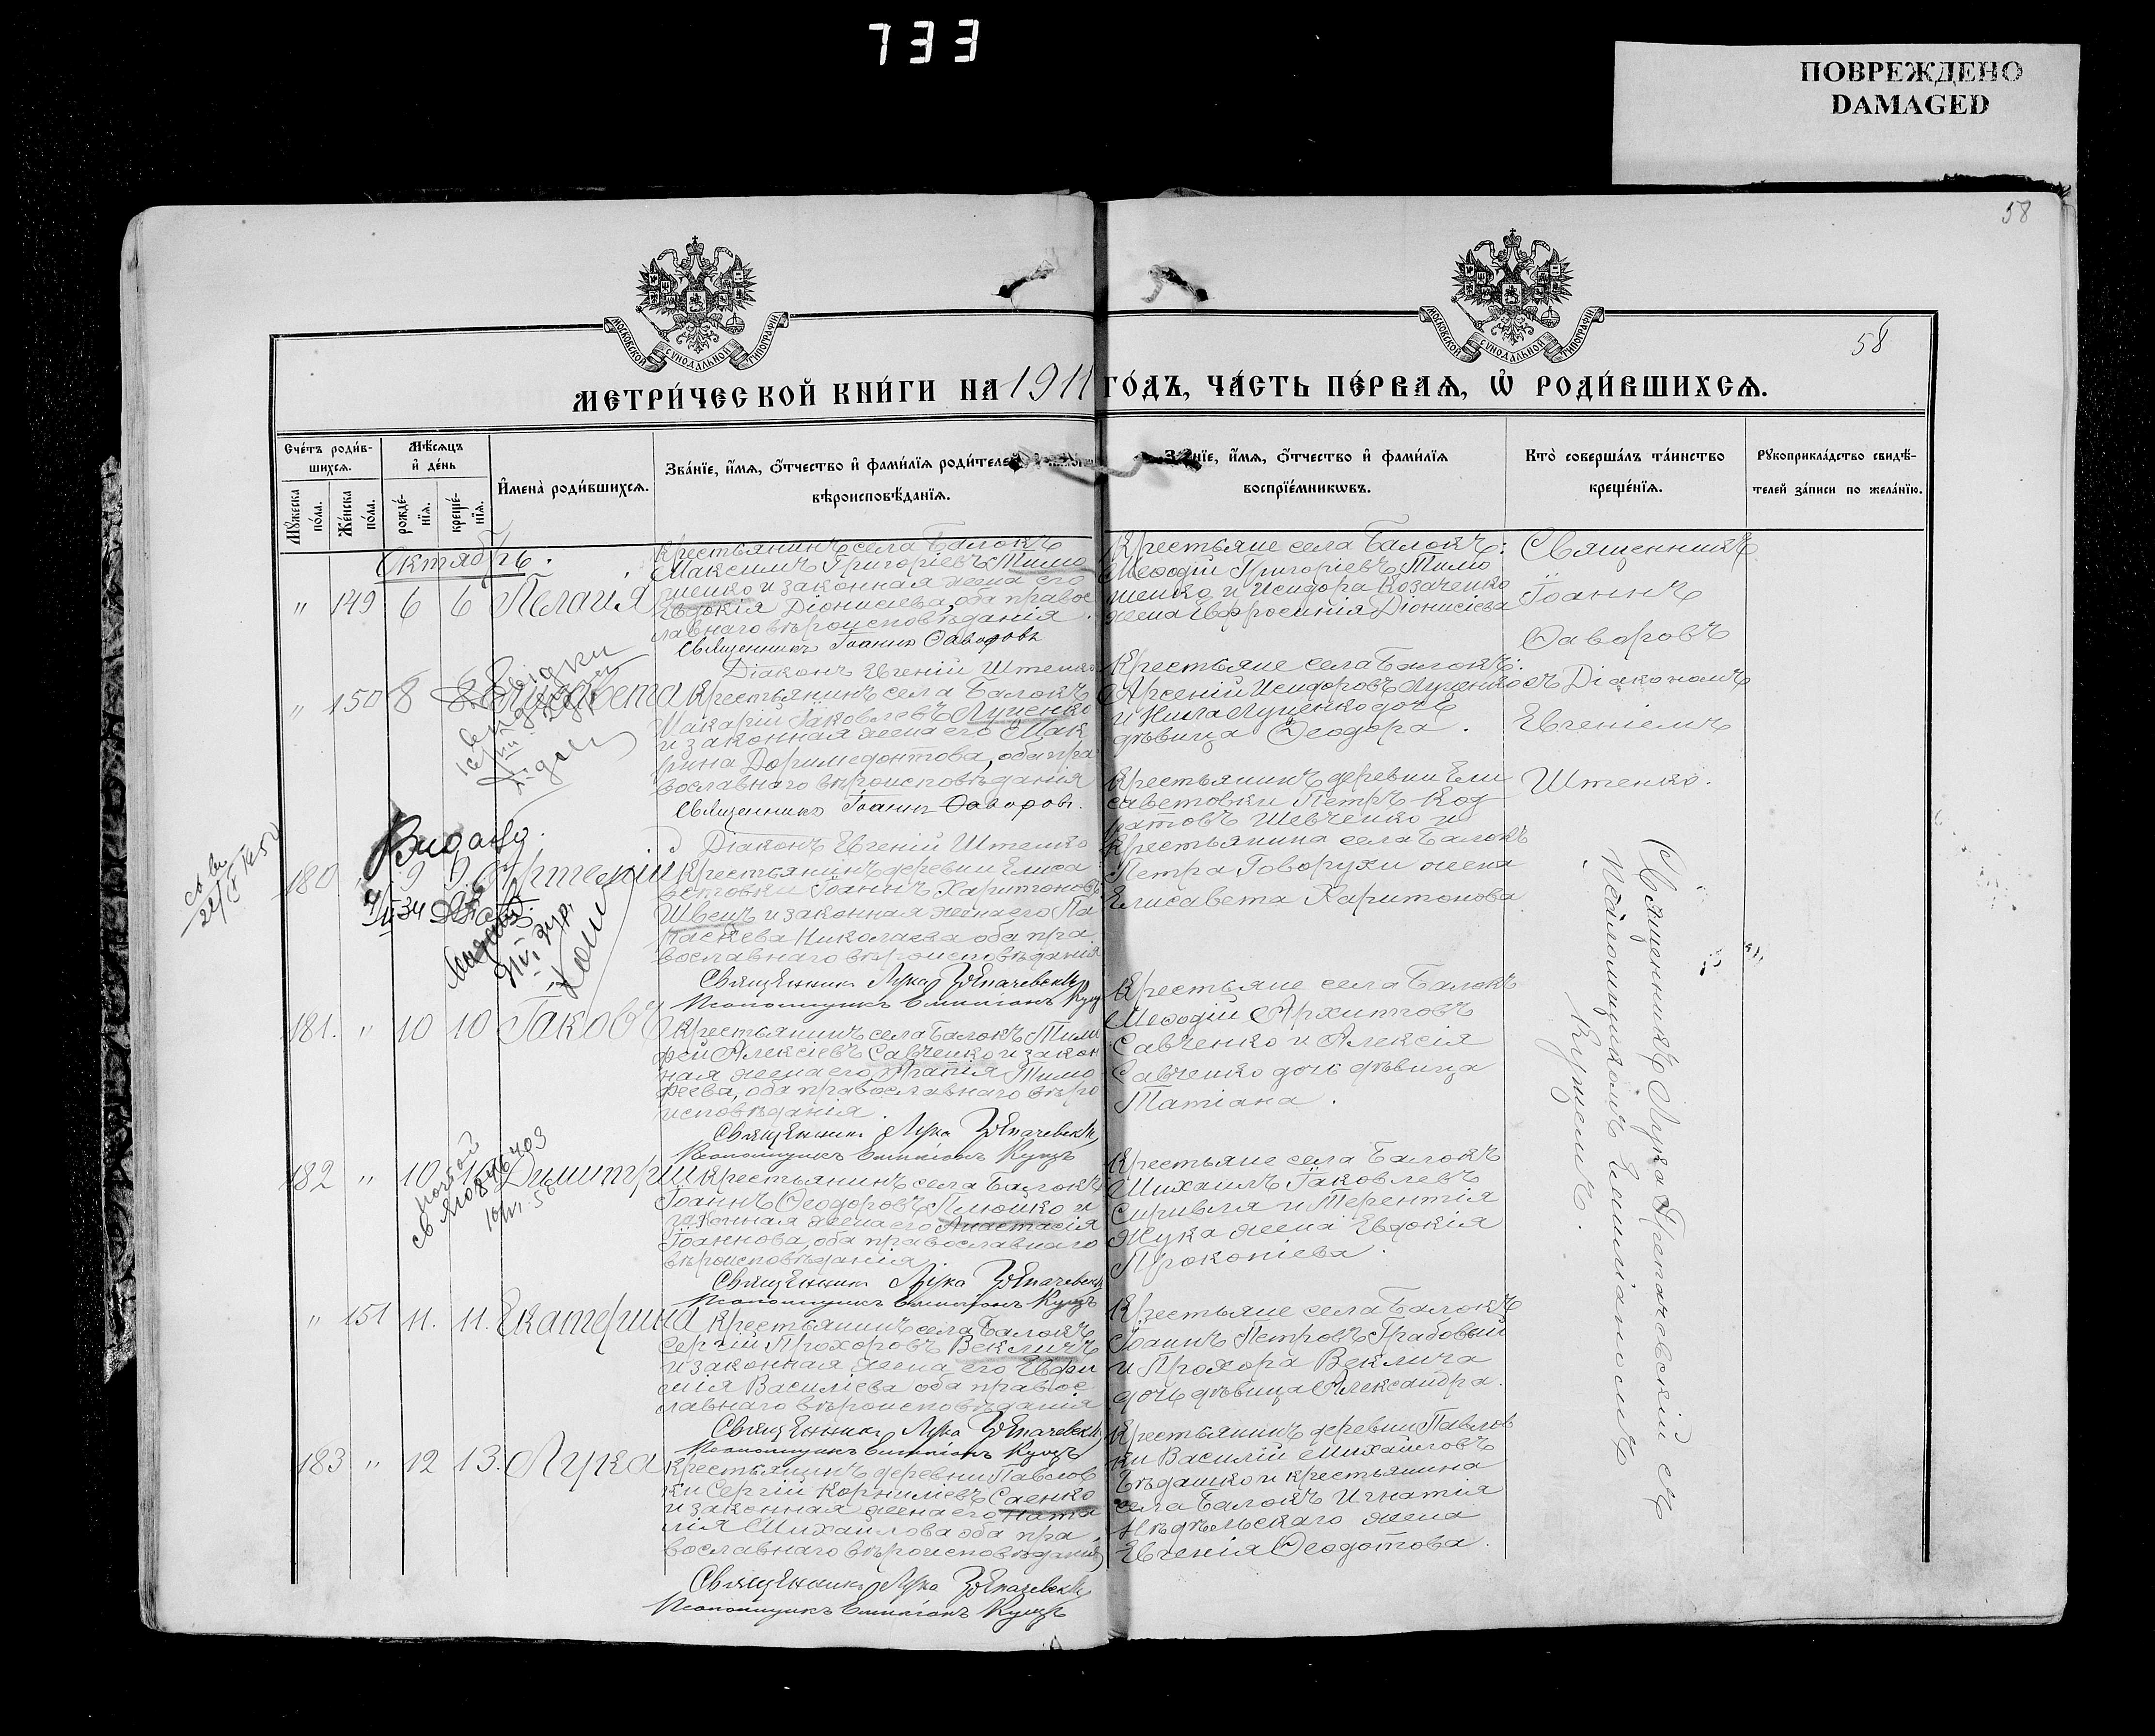 733
ПОВРЕЖДЕНО
DAMAGED
58
МОСКОВСКОЙ СѴНОДАЛЬНОЙ ТИПОГРАФІИ
МОСКОВСКОЙ СѴНОДАЛЬНОЙ ТИПОГРАФІИ
58
МЕТРИ́ЧЕСКОЙ КНИ́ГИ НА 1911 ГО́ДЪ, ЧА́СТЬ ПЕ́РВАѦ, Ѡ҆ РОДИ́ВШИХСѦ.
Сче́тъ роди́вшихсѧ.
Мꙋ́жеска по́ла.
Же́нска по́ла.
Мѣ́сѧцъ и҆ де́нь
рожде́нїѧ.
креще́нїѧ.
И҆мена̀ роди́вшихсѧ.
Зва́нїе, и҆́мѧ, ѻ҆́тчество и҆ фами́лїѧ роди́телей
вѣроисповѣ́данїѧ.
Зва́нїе, и҆́мѧ, ѻ҆́тчество и҆ фами́лїѧ
воспрїе́мникѡвъ.
Кто̀ соверша́лъ та́инство
креще́нїѧ.
Рꙋкоприкла́дство свидѣ́телей за́писи по жела́нїю.
Октябрь.
" 149 6 6 Пелагия
Крестьянинъ села Балокъ
Максимъ Григоріевъ Тимо
шенко и законная жена его
Евдокія Діонисіева, оба правос
лавнаго вѣроисповѣданія.
Священникъ Іоаннъ Фаворовъ
Діаконъ Евгеній Штенко
Крестьяне села Балокъ:
Меѳодій Григоріевъ Тимо
шенко и Исидора Козаченко
жена Евфросинія Діонисіева
Священникъ
Іоаннъ
Фаворовъ
съ Діакономъ
Евгеніемъ
Штенко.
" 150 8 8 Елисавета
Крестьянинъ села Балокъ
Макарій Іаковлевъ Луценко
и законная жена его Мак
рина Доримедонтова, оба пра
вославнаго вѣроисповѣданія
Священникъ Іоаннъ Фаворовъ.
Діаконъ Евгеній Штенко
Крестьяне села Балокъ:
Арсеній Исидоровъ Луценко
и Луценко дочь
дѣвица Ѳеодора.
Видано.
180 9 9 Артемій
Крестьянинъ деревни Елиса
ветовки Іоаннъ Харитоновъ
Швецъ и законная жена его Па
раскева Николаева оба пра
вославнаго вѣроисповѣданія
Священникъ Лука
Псаломщикъ Емиліанъ Кущъ
Крестьянинъ деревни Ели
саветовки Петръ Код
ратовъ Шевченко и
Крестьянина села Балокъ
Петра Говорухи жена
Елисавета Харитонова
Священникъ Лука съ
Псаломщикомъ Емиліаномъ
Кущемъ.
181. " 10 10 Іаковъ
Крестьянинъ села Балокъ Тимо
фей Алексіевъ Савченко и закон
ная жена его Агапія Тимо
феева, оба православнаго вѣро
исповѣданія.
Священникъ Лука
Псаломщикъ Емиліанъ Кущъ
Крестьяне села Балокъ
Меѳодій Архиповъ
Савченко и Алексія
Савченко дочь дѣвица
Татіана.
182 " 10 10 Димитрій
Крестьянинъ села Балокъ
Іоаннъ Ѳеодоровъ и
законная жена его Анастасія
Іоаннова, оба православнаго
вѣроисповѣданія.
Священникъ Лука
Псаломщикъ Емиліанъ Кущъ
Крестьяне села Балокъ
Михаилъ Іаковлевъ
и Терентія
Жука жена Евдокія
Прокопіева.
" 151 11. 11. Екатерина
Крестьянинъ села Балокъ
Сергій Прохоровъ Векличъ
и законная жена его Евфи
мія Василіева оба правос
лавнаго вѣроисповѣданія
Священникъ Лука
Псаломщикъ Емиліанъ Кущъ
Крестьяне села Балокъ
Іоаннъ Петровъ Грабовый
и Прохора Веклича
дочь дѣвица Александра.
183 " 12 13. Лука
Крестьянинъ деревни Павлов
ки Сергій Корниліевъ Саенко
и законная жена его Ната
лія Михайлова оба пра
вославнаго вѣроисповѣданія
Священникъ Лука
Псаломщикъ Емиліанъ Кущъ
Крестьянинъ деревни Павлов
ки Василій Михайловъ
Бѣдашко и крестьянина
села Балокъ Игнатія
Недѣльскаго жена
Евгенія Ѳеодотова.